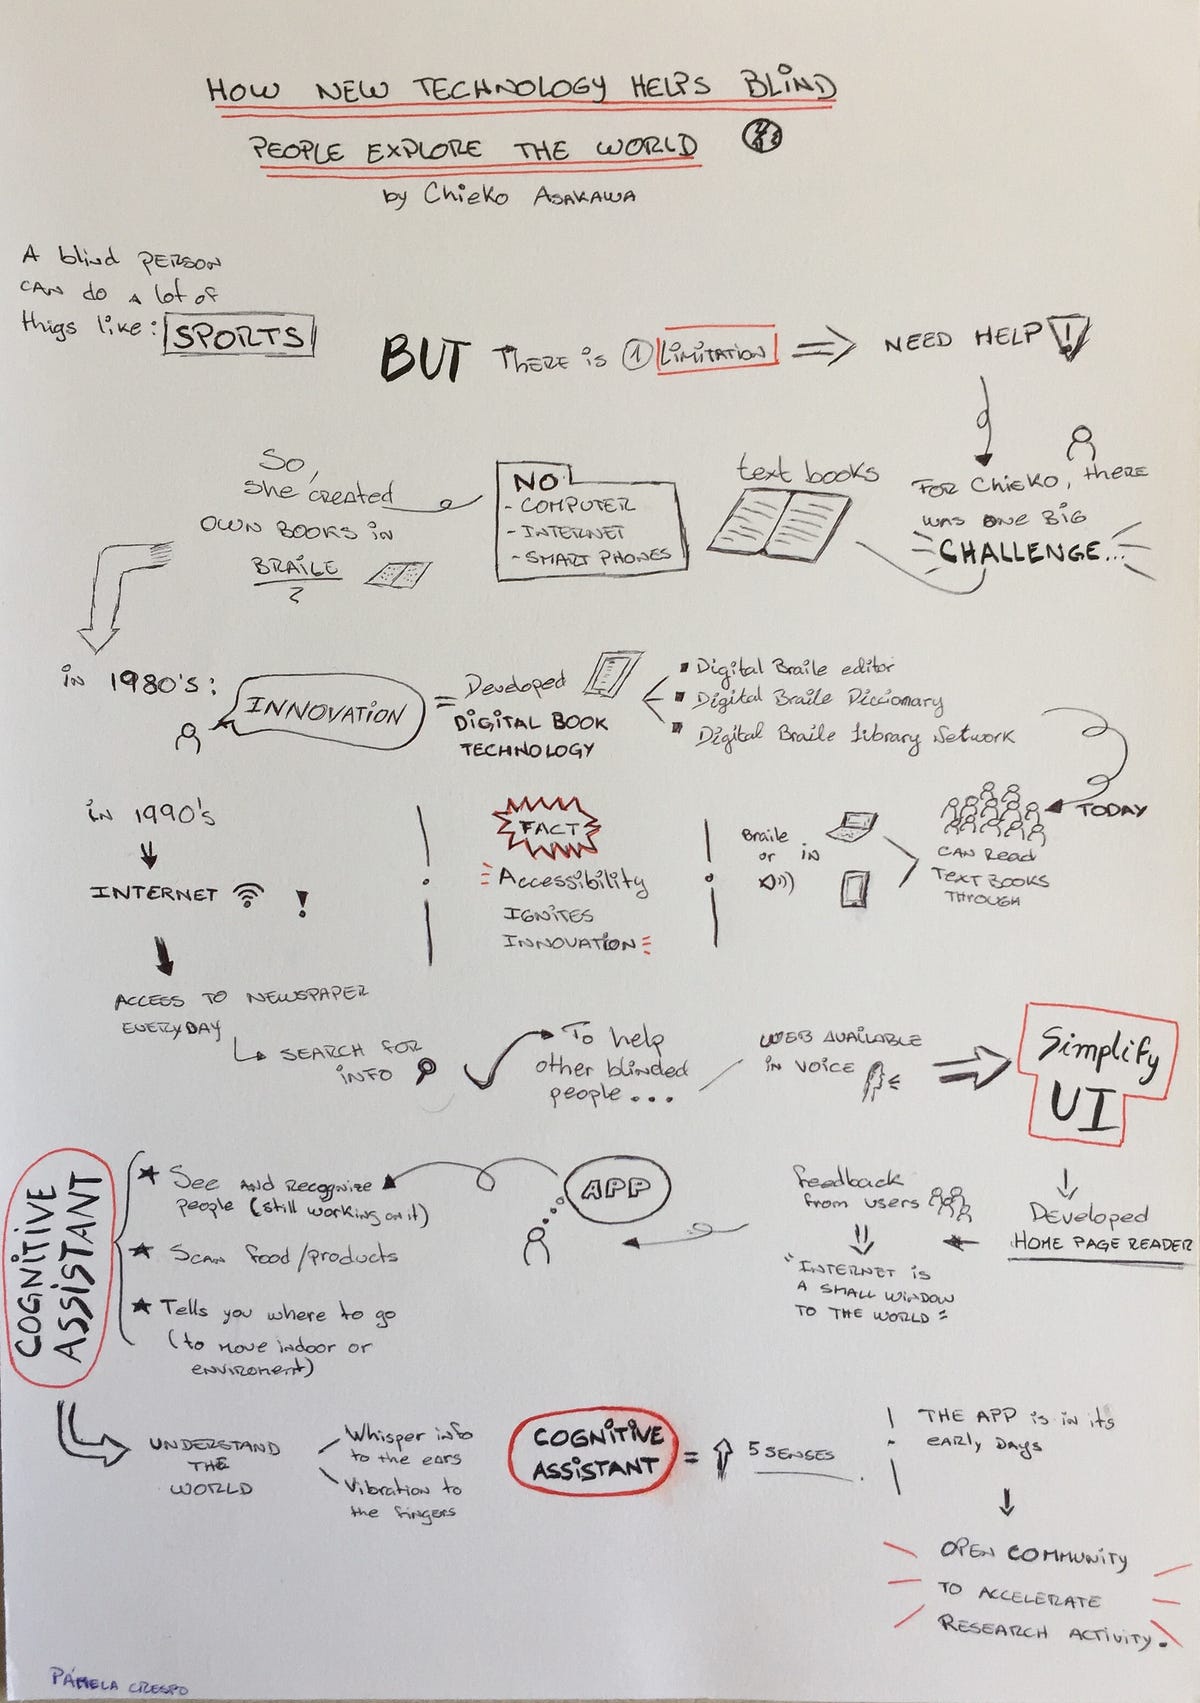 HOW NEW TECHNOLOGY HELPS BLIND
PEOPLE EXPLORE THE WORLD
by Chieko ASAKAWA
A blind PERSON
CAN do A lot of
thigs like: SPORTS
BUT THERE is 1 LIMITATION
NEED HELP !
FOR Chieko, there
was one big
CHALLENGE...
text books
NO
- COMPUTER
- INTERNET
- SMART PHONES
So,
she created
OWN BOOKS in
BRAILE
in 1980's:
INNOVATION
= Developed
DIGITAL BOOK
TECHNOLOGY
Digital Braile editor
Digital Braile Diccionary
Digital Braile Library Network
TODAY
CAN READ
TEXT BOOKS
THROUGH
Braile
or in
FACT
Accessibility
IGNITES
INNOVATION
in 1990's
INTERNET !
ACCESS TO NEWSPAPER
EVERYDAY
SEARCH FOR
INFO
To help
other blinded
people...
WEB AVAILABLE
IN VOICE
Simplify
UI
Developed
HOME PAGE READER
Feedback
from users
"INTERNET IS
A SMALL WINDOW
TO THE WORLD"
APP
COGNITIVE
ASSISTANT
★ See and recognize
people (still working on it)
★ Scan food/products
★ Tells you where to go
(to move indoor or
enviroment)
UNDERSTAND
THE
WORLD
Whisper info
to the ears
Vibration to
the fingers
COGNITIVE
ASSISTANT
= 5 SENSES
THE APP is in its
early days
OPEN COMMUNITY
TO ACCELERATE
RESEARCH ACTIVITY.
PAMELA CRESPO